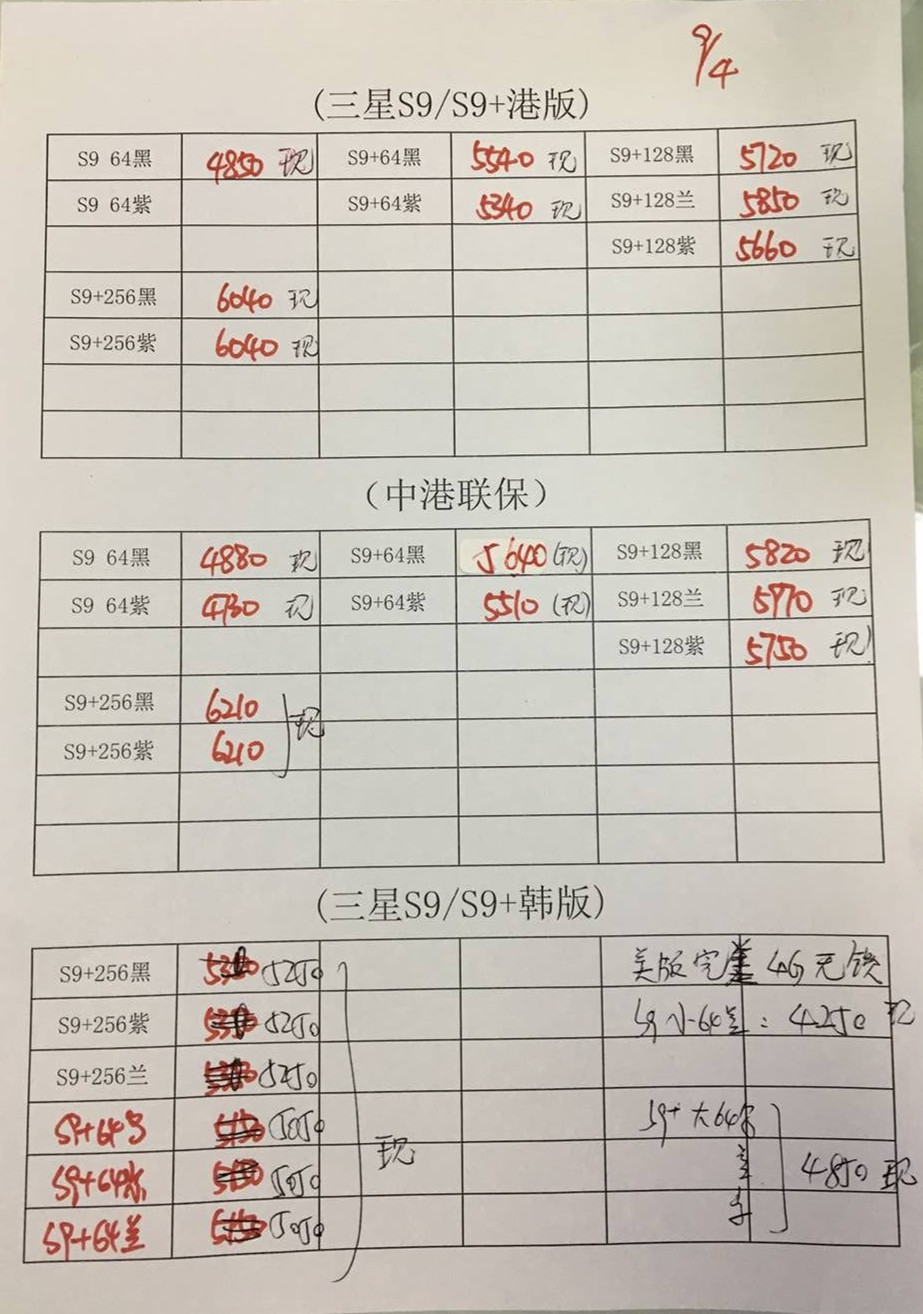 9/4
(三星S9/S9+港版)
S9 64黑 4850 现 S9+64黑 5540 现 S9+128黑 5720 现
S9 64紫 S9+64紫 5340 现 S9+128兰 5850 现
S9+128紫 5660 现
S9+256黑 6040 现
S9+256紫 6040 现
(中港联保)
S9 64黑 4880 现 S9+64黑 5640 (现) S9+128黑 5820 现
S9 64紫 4730 现 S9+64紫 5510 (现) S9+128兰 5770 现
S9+128紫 5750 现)
S9+256黑 6210 现
S9+256紫 6210
(三星S9/S9+韩版)
S9+256黑 5250 美版完美 4G无锁
S9+256紫 5250 S9小64兰: 4250 现
S9+256兰 5250
S9+64 5050 S9+大64
现
S9+64 5050 兰 4850 现
S9+64兰 5050